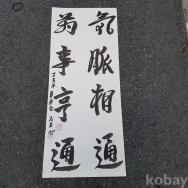 氣脈相通
萬事亨通
kobay